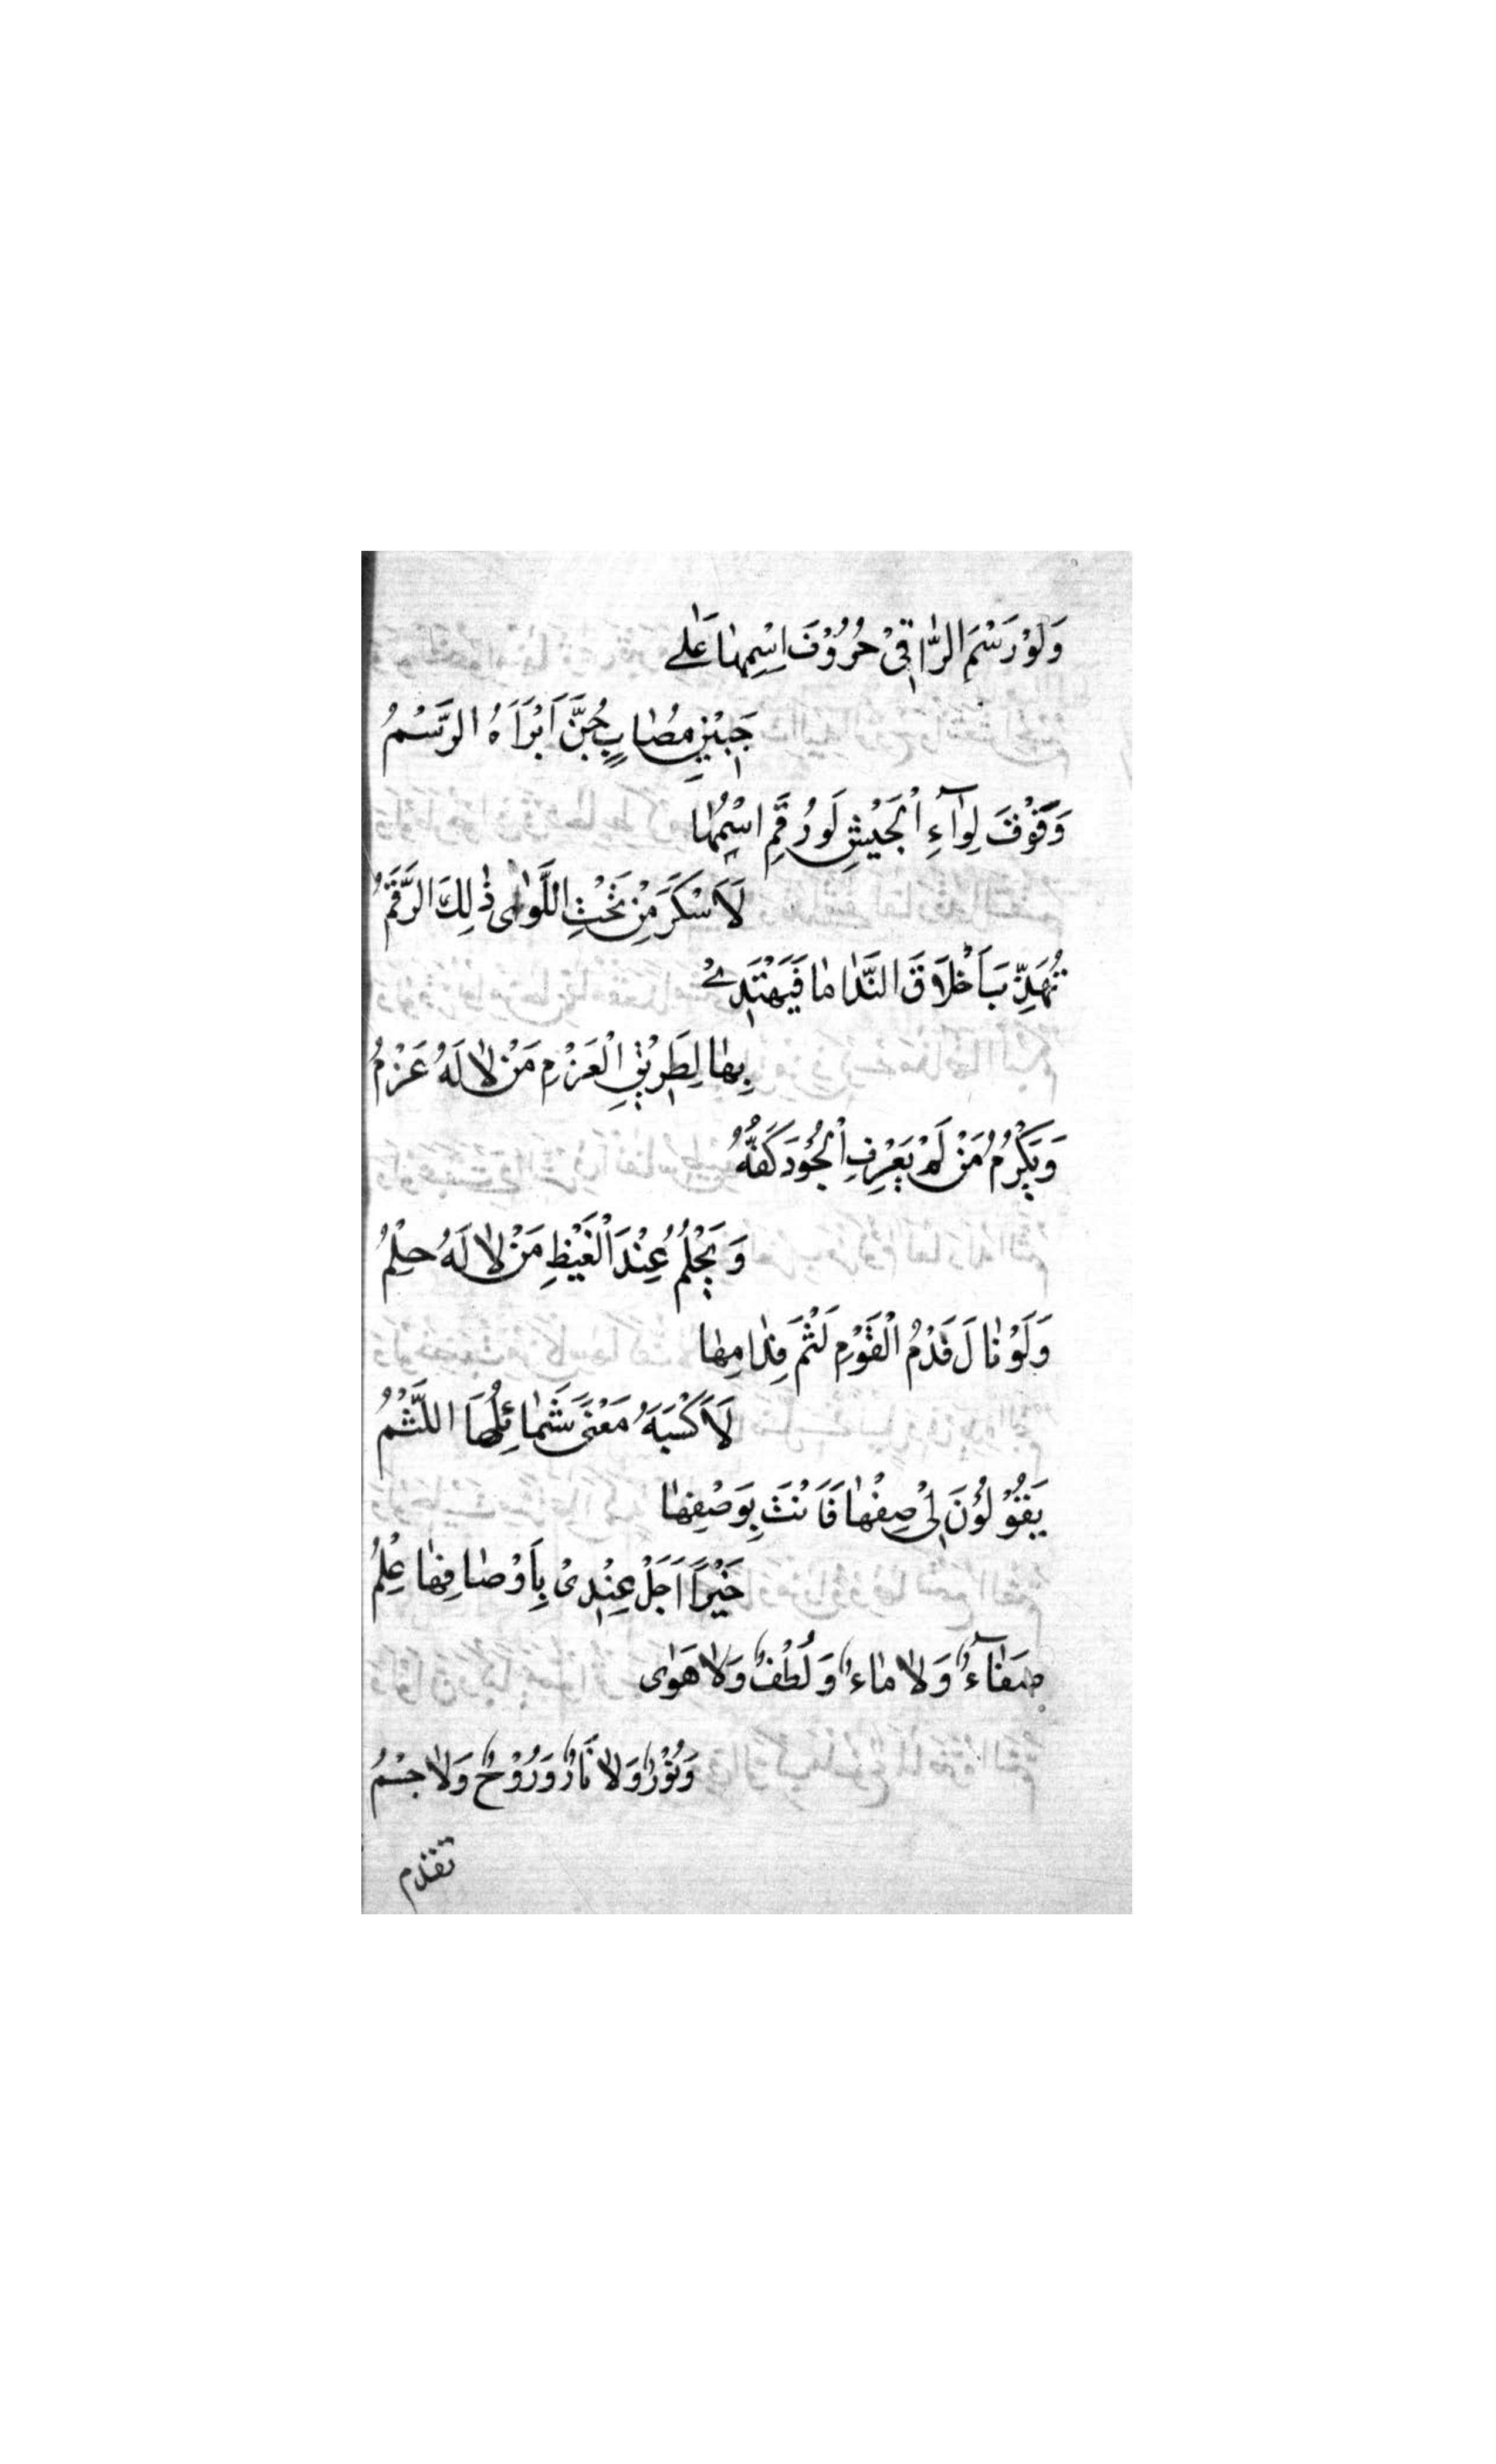 وَلَوْ رَسَمَ الرَّاقِيْ حُرُوْفَ اِسْمِهَا عَلٰے
جَبِيْنِ مُصَابٍ جُنَّ اَبْرَاَهُ الرَّسْمُ
وَفَوْقَ لِوَآءِ الْجَيْشِ لَوْ رُقِمَ اسْمُهَا
لَاَسْكَرَ مَنْ تَحْتَ اللِّوٰى ذٰلِكَ الرَّقْمُ
تُهَذِّبُ اَخْلَاقَ النَّدَامٰا فَيَهْتَدِےْ
بِهَا لِطَرِيْقِ الْعَزْمِ مَنْ لَا لَهُ عَزْمُ
وَيَكْرُمُ مَنْ لَمْ يَعْرِفِ الْجُوْدَ كَفُّهُ
وَيَحْلُمُ عِنْدَ الْغَيْظِ مَنْ لَا لَهُ حِلْمُ
وَلَوْ نَالَ فَدْمُ الْقَوْمِ لَثْمَ فِدَامِهَا
لَاَكْسَبَهُ مَعْنٰى شَمَائِلِهَا اللَّثْمُ
يَقُوْلُوْنَ لِيْ صِفْهَا فَاَنْتَ بِوَصْفِهَا
خَبِيْرًا اَجَلْ عِنْدِىْ بِاَوْصَافِهَا عِلْمُ
صَفَآءٌ وَلَا مَاءٌ وَلُطْفٌ وَلَا هَوٰى
وَنُوْرٌ وَلَا نَارٌ وَرُوْحٌ وَلَا جِسْمُ
تقدم